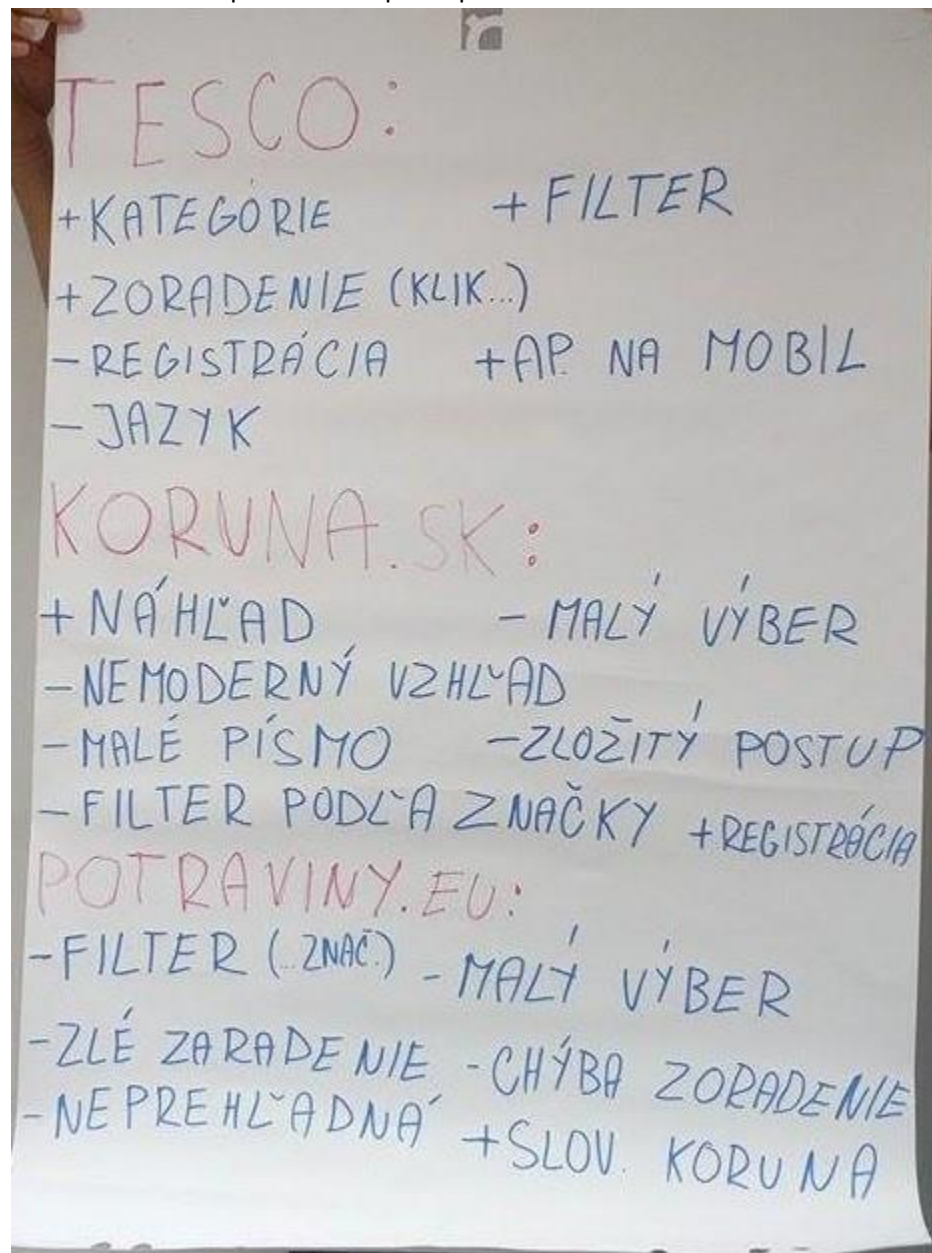 TESCO:
+KATEGÓRIE +FILTER
+ZORADENIE (KLIK...)
-REGISTRÁCIA +AP. NA MOBIL
-JAZYK
KORUNA.SK:
+NÁHĽAD -MALÝ VÝBER
-NEMODERNÝ VZHĽAD
-MALÉ PÍSMO -ZLOŽITÝ POSTUP
-FILTER PODĽA ZNAČKY +REGISTRÁCIA
POTRAVINY.EU:
-FILTER (..ZNAČ.) -MALÝ VÝBER
-ZLÉ ZARADENIE -CHÝBA ZORADENIE
-NEPREHĽADNÁ +SLOV. KORUNA